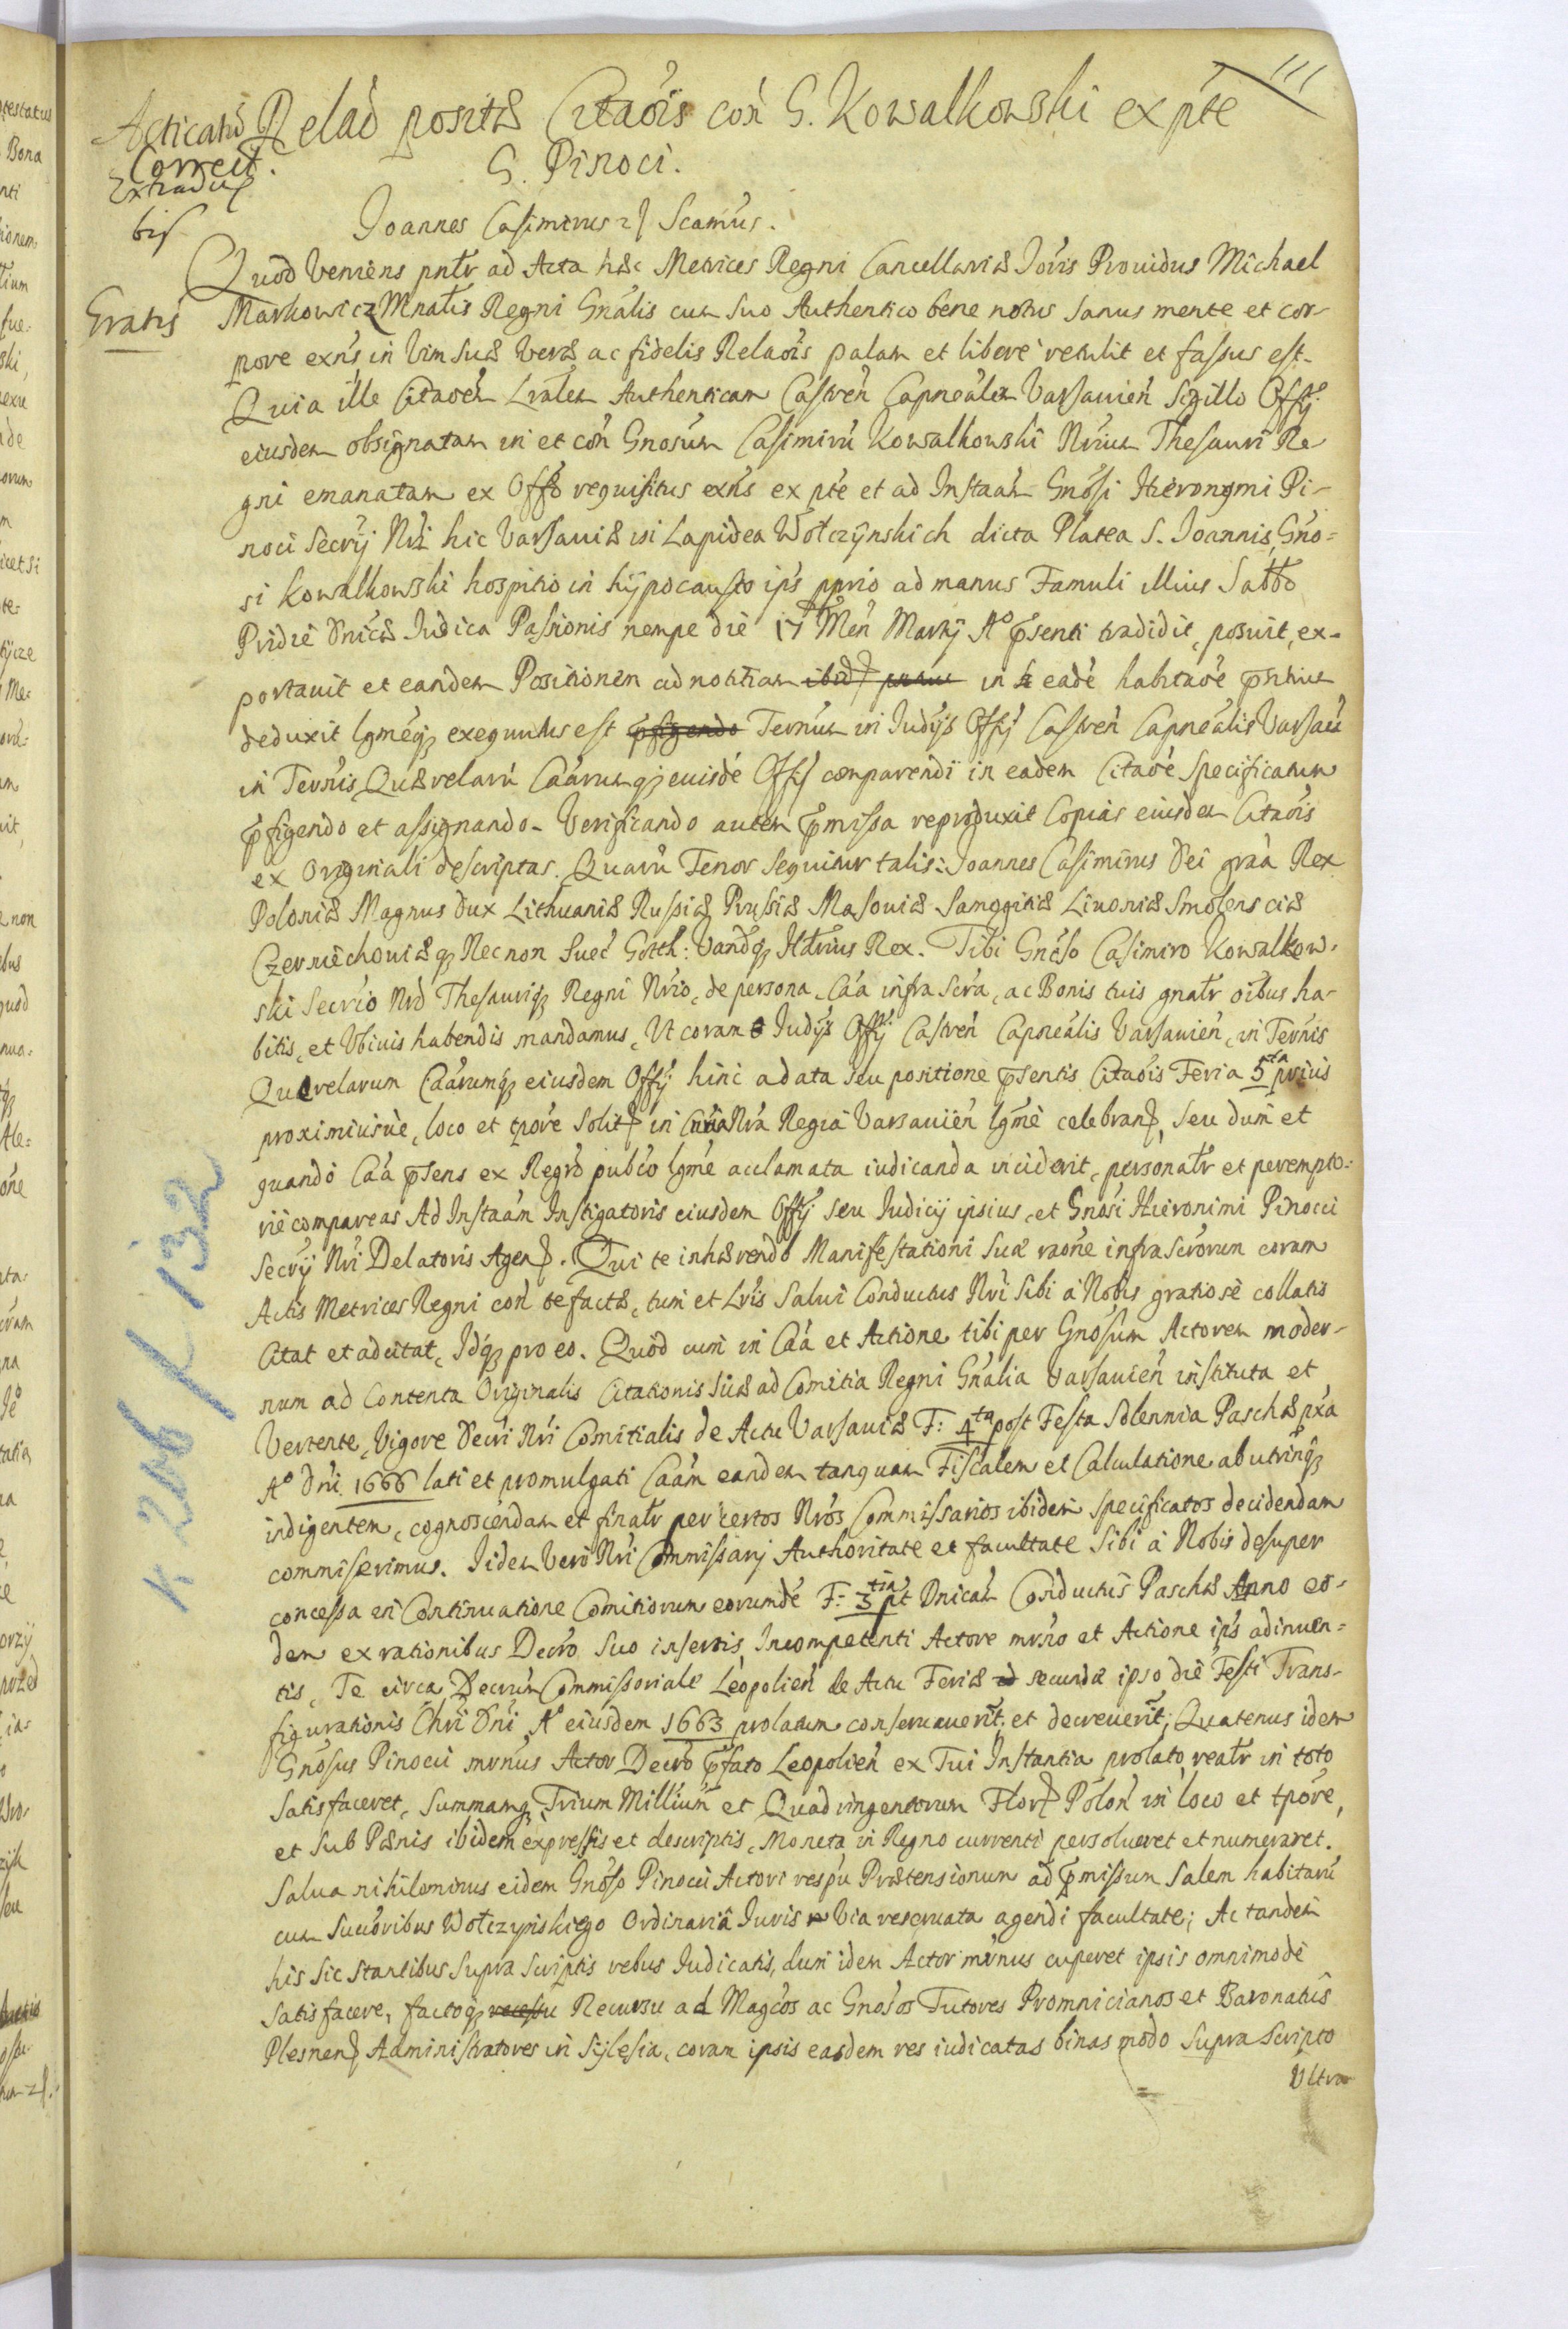 111
Acticatū Relaō positæ Citaōis con̄ G. Kowalkowski ex pte
Correct. G. Pinoci.
Extradit
bis Joannes Casimirus Scamus.
Quod Veniens pntr ad Acta hæc Metrices Regni Cancellariæ Joris Prouidus Michael
Gratis Markowicz Mnalis Regni Gnalis cum suo Authentico bene notus sanus mente et cor-
pore exns in Vim suæ Veræ ac fidelis Relaōis palam et libere retulit et fassus est.
Quia ille Citaōem Lralem Authenticam Castren Capnealem Varsauien Sigillo Offij
eiusdem obsignatam in et con̄ Gnosum Casimirū Kowalkowski Nrium Thesauri Re
gni emanatam ex Offo requisitus exns ex pte et ad Instaam Gnosi Hieronymi Pi-
noci Secrij Nri hic Varsauiæ in Lapidea Wołczynskich dicta Platea S. Joannis, Gno-
si Kowalkowski hospitio in hypocausto ips pprio ad manus Famuli illius Sabbo
Pridie Dnicæ Judica Passionis nempe die 17 Men Martij A° psenti tradidit, posuit, ex-
portauit et eandem Positionem ad notitiam in eadē habitaōe psntium
deduxit lgmeq exequutus est Ternum in Judijs Offij Castren Capnealis Varsaū
in Ternis Quærelarū Caarumq euisdē Offij comparendi in eadem Citaōe specificatum
pfigendo et assignando. Verificando autem pmissa reproduxit Copias eiusdem Citaōis
ex Originali descriptas. Quarū Tenor sequitur talis: Joannes Casimirus Dei graa Rex
Poloniæ Magnus Dux Lithuaniæ Russiæ Prussiæ Masouiæ Samogitiæ Liuoniæ Smolensciæ
Czerniechouiæq Necnon Suec Gotth: Vandq Hdrius Rex. Tibi Gnoso Casimiro Kowalkow-
ski Secrio Nro Thesauriq Regni Nrio, de persona, Caa infra scra, ac Bonis tuis gnatr oibus ha-
bitis, et Vbiuis habendis mandamus, Vt coram Judijs Offij Castren Capnealis Varsauien, in Ternis
Querelarum Caarumq eiusdem Offij hinc adata seu positione psentis Citaōis Feria 5ta prius
proximiusue, loco et tpore solit in Curia Nra Regia Varsauien lgme celebran, seu dum et
quando Caa psens ex Regro pubco lgme acclamata iudicanda inciderit, personatr et perempto-
rie compareas Ad Instaam Instigatoris eiusdem Offij seu Judicij ipsius, et Gnosi Hieronimi Pinocci
Secrij Nri Delatoris Agen. Qui te inhærendo Manifestationi suæ raōne infrascrorum coram
Actis Metrices Regni con̄ te factæ, tum et Lris Salui Conductus Nri sibi à Nobis gratiose collatis
Citat et adcitat, Idq pro eo. Quod cum in Caa et Actione tibi per Gnosum Actorem moder-
num ad Contenta Originalis Citationis suæ ad Comitia Regni Gnalia Varsauien instituta et
Vertente, Vigore Decri Nri Comitialis de Actu Varsauiæ F: 4ta post Festa Solennia Paschæ pxa
A° Dni 1666 lati et promulgati Caam eandem tanquam Fiscalem et Calculatione ab utrinq
indigentem, cognoscendam et finatr per certos Nros Commissarios ibidem specificatos decidendam
commiserimus. Iidem Vero Nri Commissarij Authoritate et facultate sibi à Nobis desuper
concessa in Continuatione Comitiorum eorumdē F: 3tia pt Dnicam Conductus Paschæ Anno eo-
dem ex rationibus Decro suo insertis, Incompetenti Actore mrno et Actione ips adinuen-
tis, Te circa Decrum Commissoriale Leopolien de Actu Feriæ secundæ ipso die Festi Trans-
figurationis Chri Dni A° eiusdem 1663 prolatum conseruauerit, et decreuerit, Quatenus idem
Gnosus Pinocci mrnus Actor Decro pfato Leopolien ex Tui Instantia prolato, reatr in toto
satisfaceret, summamq Trium Millium et Quadringentorum Flor Polon in loco et tpore,
et sub Pœnis ibidem expressis et descriptis, Moneta in Regno currenti persolueret et numeraret.
Salua nihilominus eidem Gnoso Pinocci Actori respu Prætensionum ad pmissum Salem habitarū
cum Succoribus Wołczynskiego Ordinariâ Juris Via reseruata agendi facultate; Ac tandem
his sic stantibus supra scriptis rebus Judicatis, dum idem Actor mrnus cuperet ipsis omnimode
satisfacere, factoq Recursu ad Magcos ac Gnosos Tutores Promnicianos et Baronatûs
Plesnen Administratores in Sylesia, coram ipsis easdem res iudicatas binas modo supra scripto
Vltra
K 206 K 132